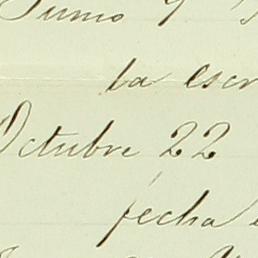 Junio 9
la escr
Octubre 22
fecha